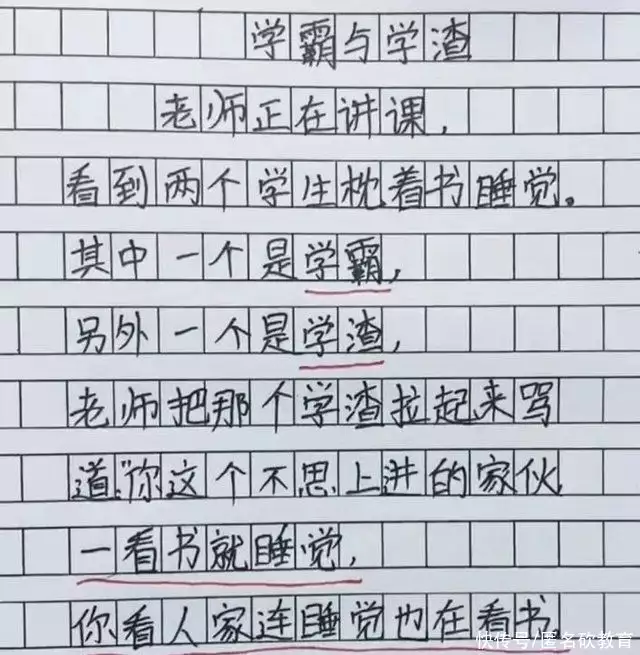 学霸与学渣
老师正在讲课,
看到两个学生枕着书睡觉。
其中一个是学霸,
另外一个是学渣,
老师把那个学渣拉起来骂
道:"你这个不思上进的家伙
一看书就睡觉,
你看人家连睡觉也在看书
快传号/匿名砍教育